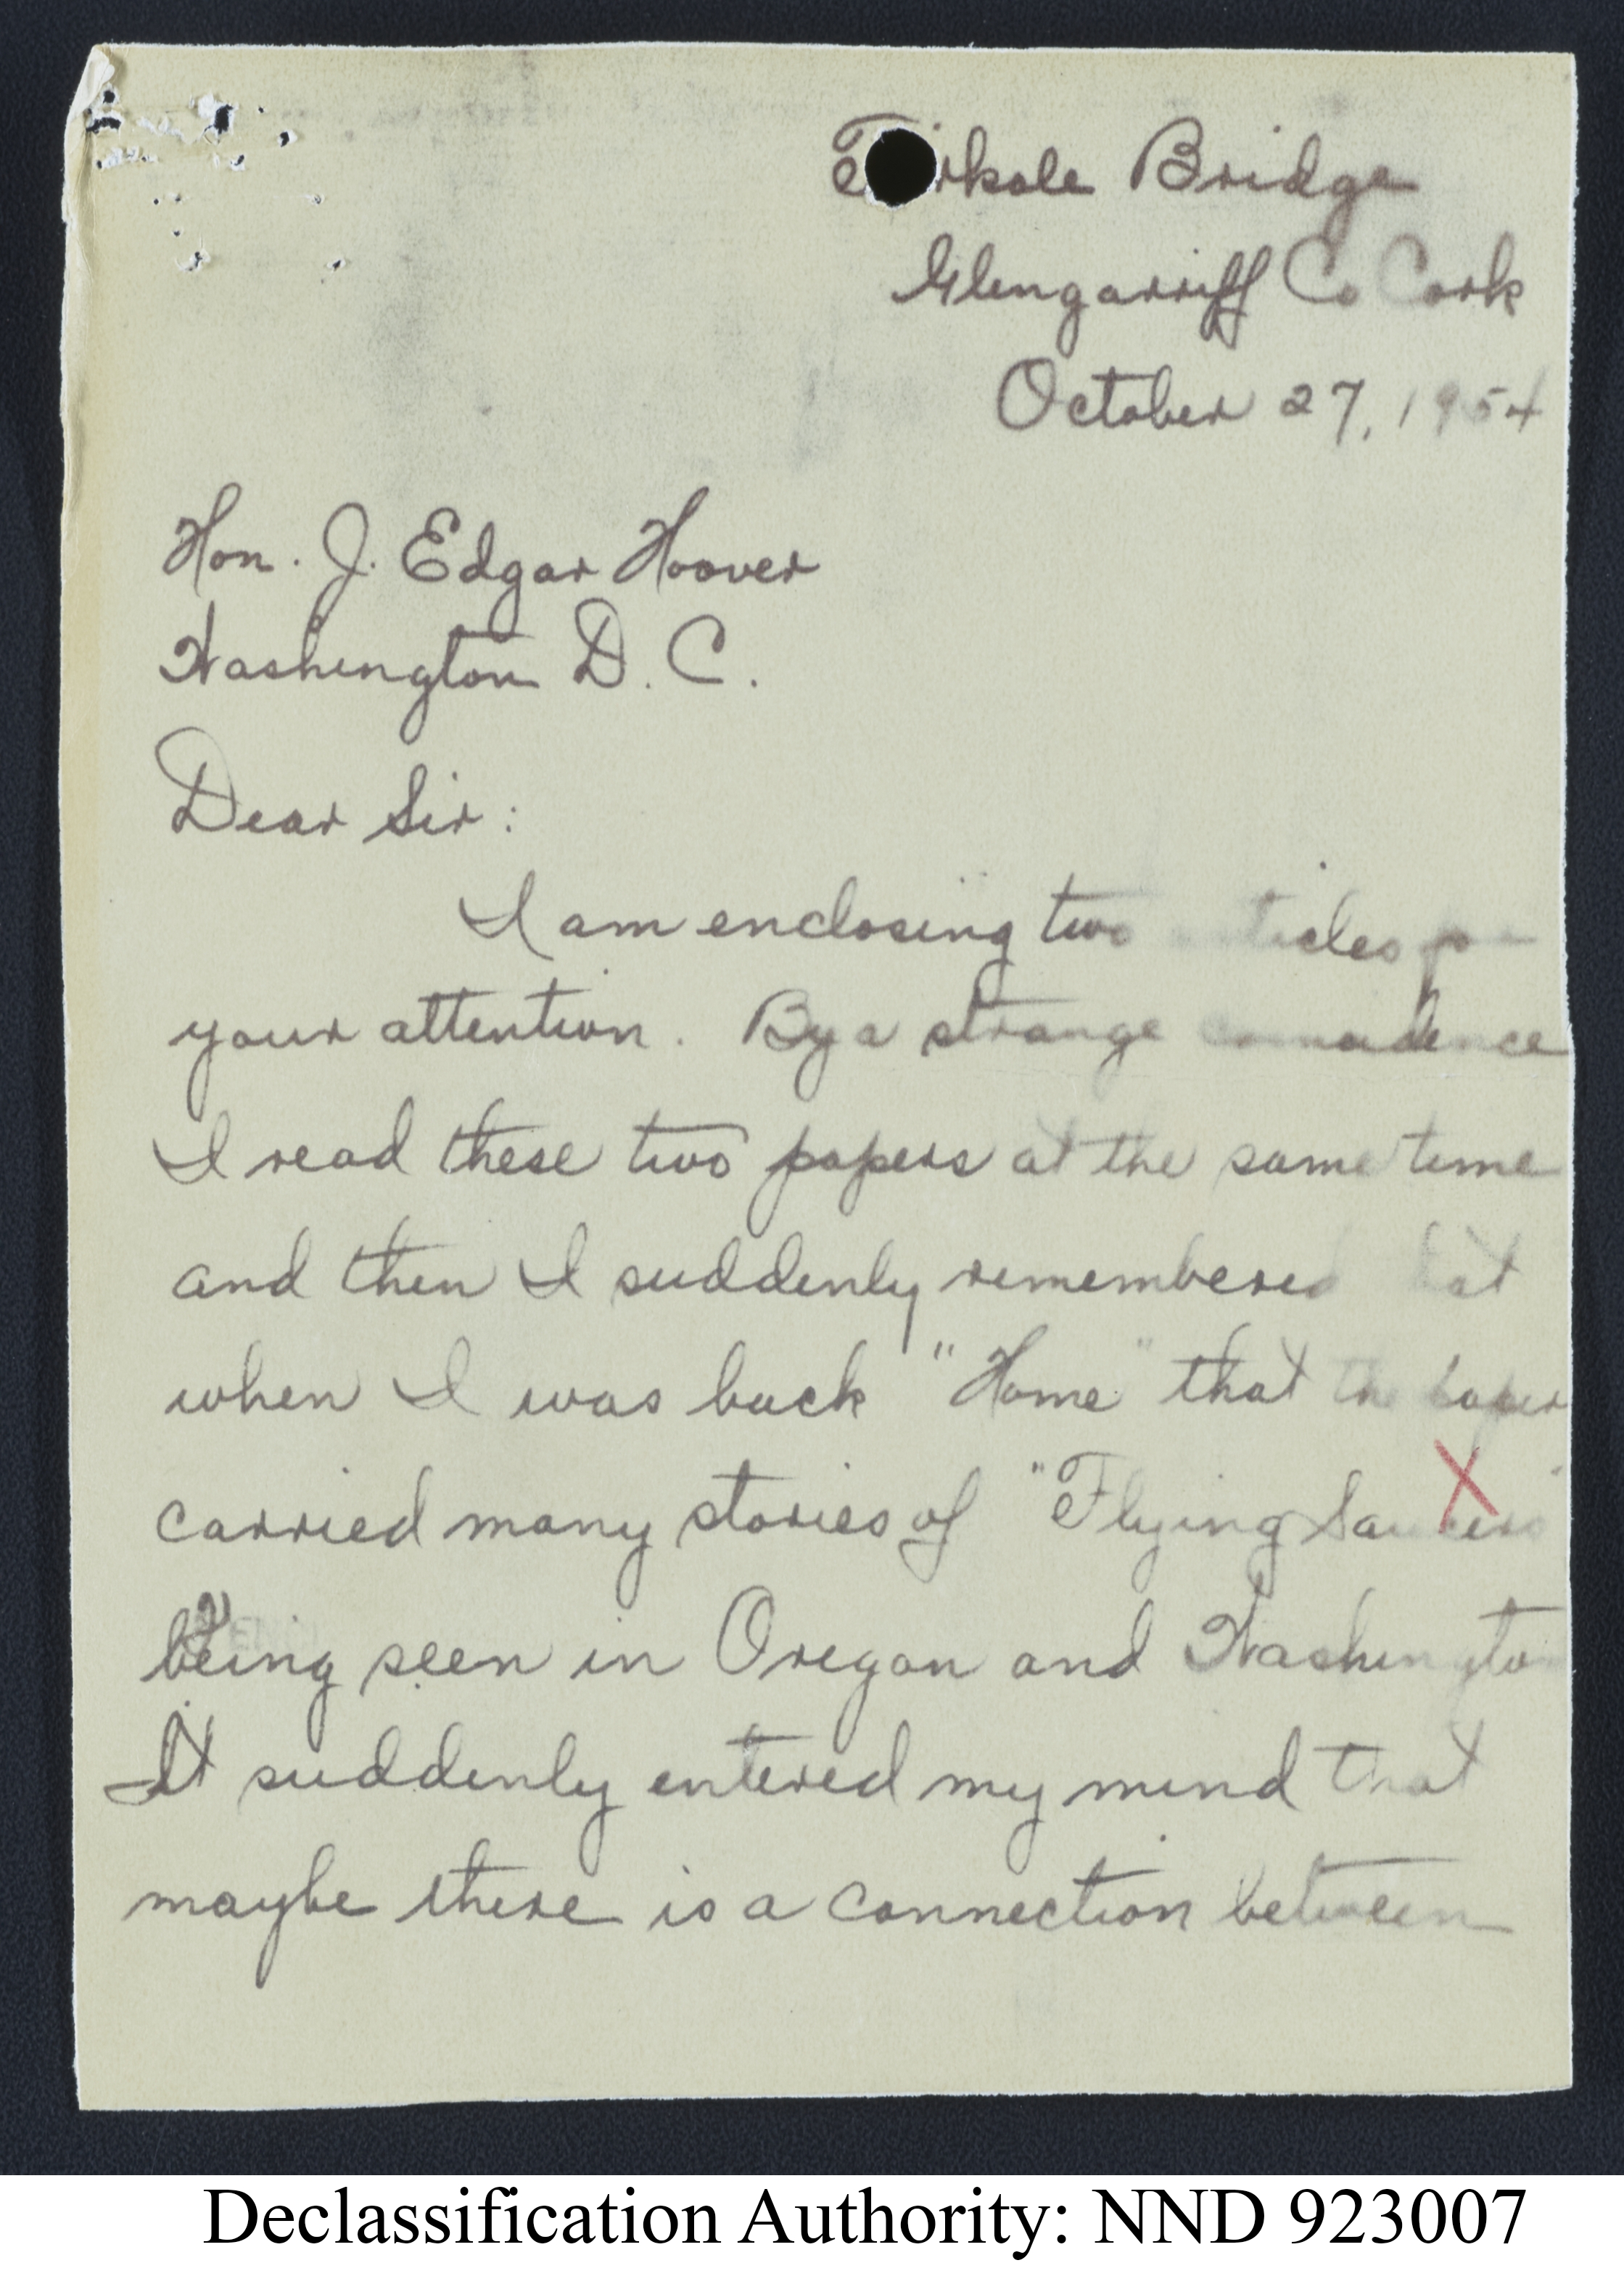 Bridge
Glengarriff Co Cork
October 27, 1954
Hon. J. Edgar Hoover
Washington D. C.
Dear Sir:
I am enclosing two articles
your attention. By a strange
I read these two papers at the same time
and then I suddenly remembered that
when I was back "Home" that the paper
carried many stories of "Flying Saucers"
being seen in Oregon and Washington
It suddenly entered my mind that
maybe there is a connection between
Declassification Authority: NND 923007